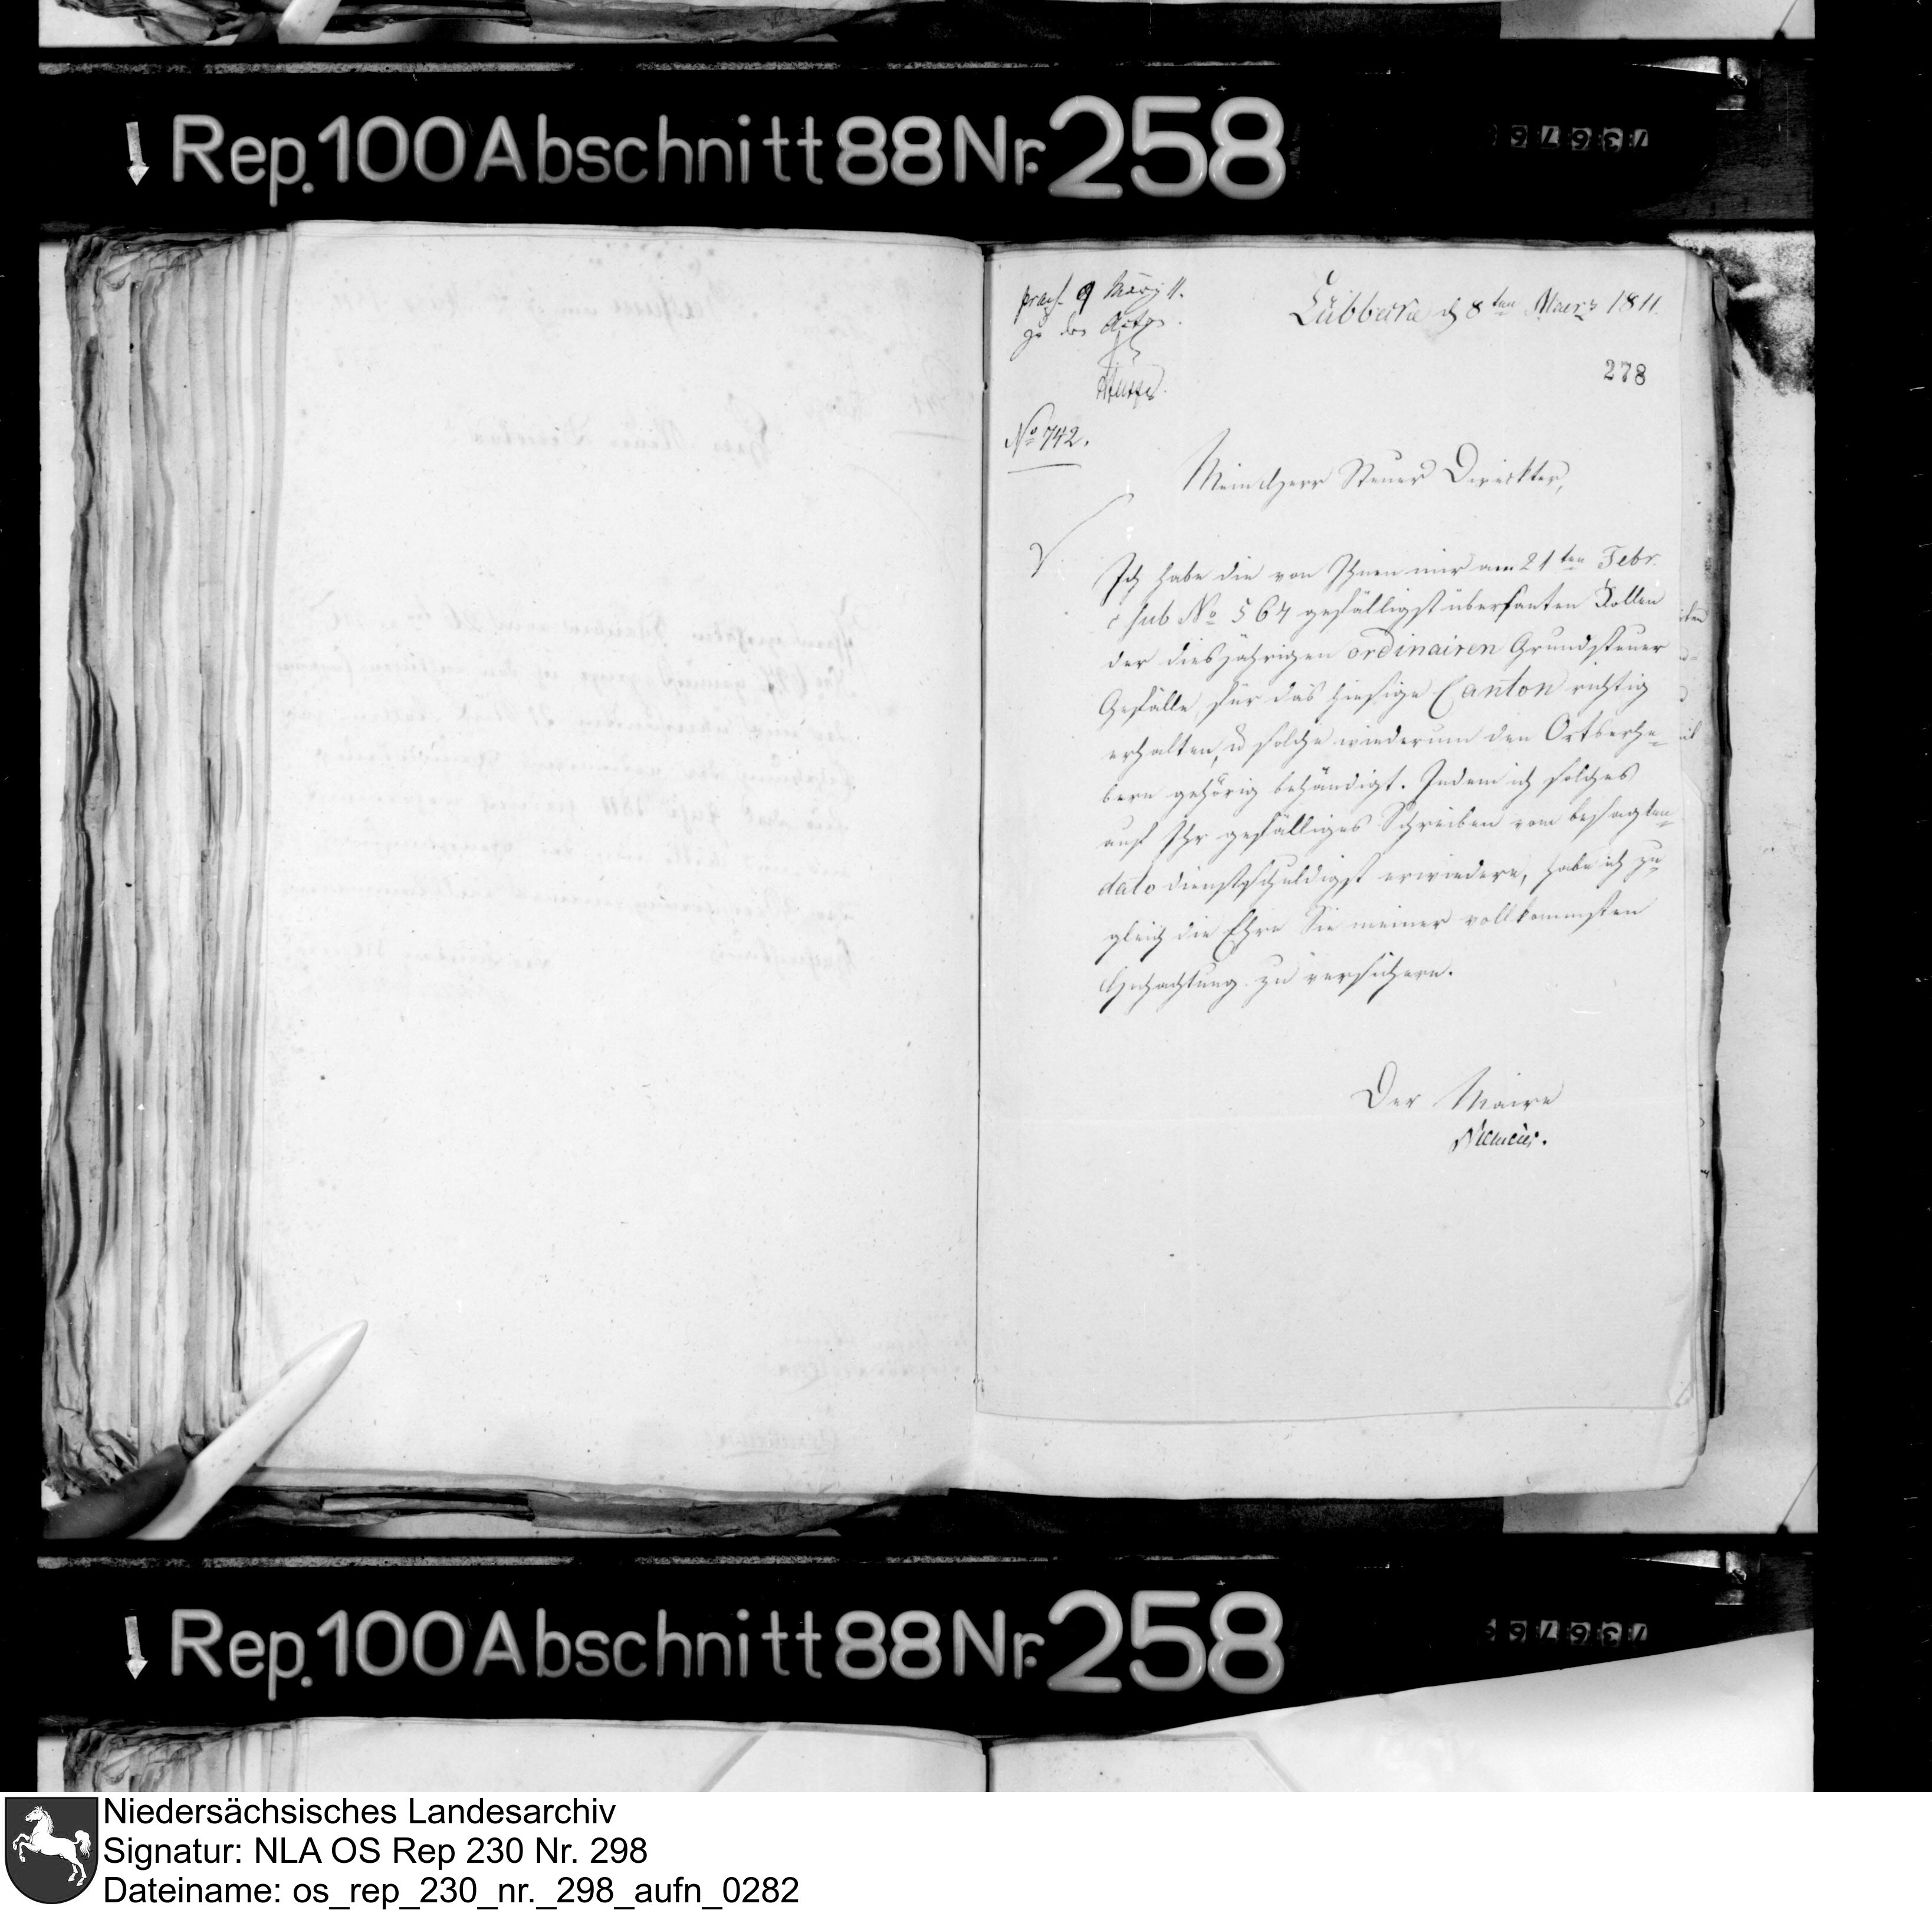 Rep. 100 Abschnitt 88 Nr. 258
praes. 9 März 11.
zu den Acten
Lübbecke d 8ten Maerz 1811.
278
No 742.
Mein Herr Steuer Direcktor,
Ich habe die von Ihnen mir am 21ten Febr.
c sub No 564 gefälligst übersanten Rollen
der diesjährigen ordinairen Grundsteuer
Gefälle für das hiesige Canton richtig
erhalten, u solche wiederum den Ortserhe-
bern gehörig behändigt. Indem ich solches
auf Ihr gefälliges Schreiben vom besagten
dato dienstschuldigst erwiedere, habe ich zu-
gleich die Ehre Sie meiner vollkommsten
Hochachtung zu versichern.
Der Maire
Rep. 100 Abschnitt 88 Nr. 258
Niedersächsisches Landesarchiv
Signatur: NLA OS Rep 230 Nr. 298
Dateiname: os_rep_230_nr._298_aufn_0282